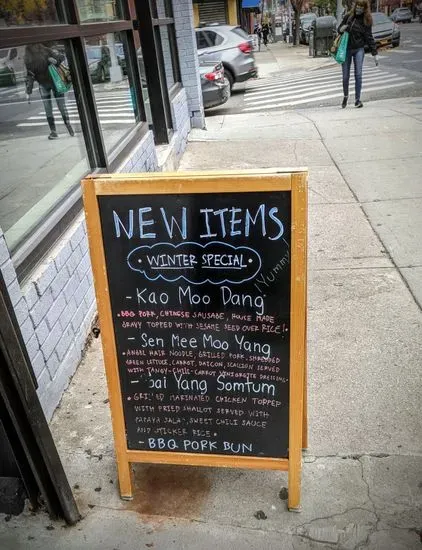 NEW ITEMS
• WINTER SPECIAL •
Yummy!
- Kao Moo Dang
• BBQ PORK, CHINESE SAUSAGE, HOUSE MADE
GRAVY TOPPED WITH SESAME SEED OVER RICE!•
- Sen Mee Moo Yang
• ANGEL HAIR NOODLE, GRILLED PORK, SHREDDED
GREEN LETTUCE, CARROT, DAICON, SCALLION SERVED
WITH TANGY-CHILI-CARROT VENIGRETTE DRESSING.
- Gai Yang Somtum
• GRILLED MARINATED CHICKEN TOPPED
WITH FRIED SHALLOT SERVED WITH
PAPAYA SALAD, SWEET CHILI SAUCE
AND STICKER RICE •
- BBQ PORK BUN